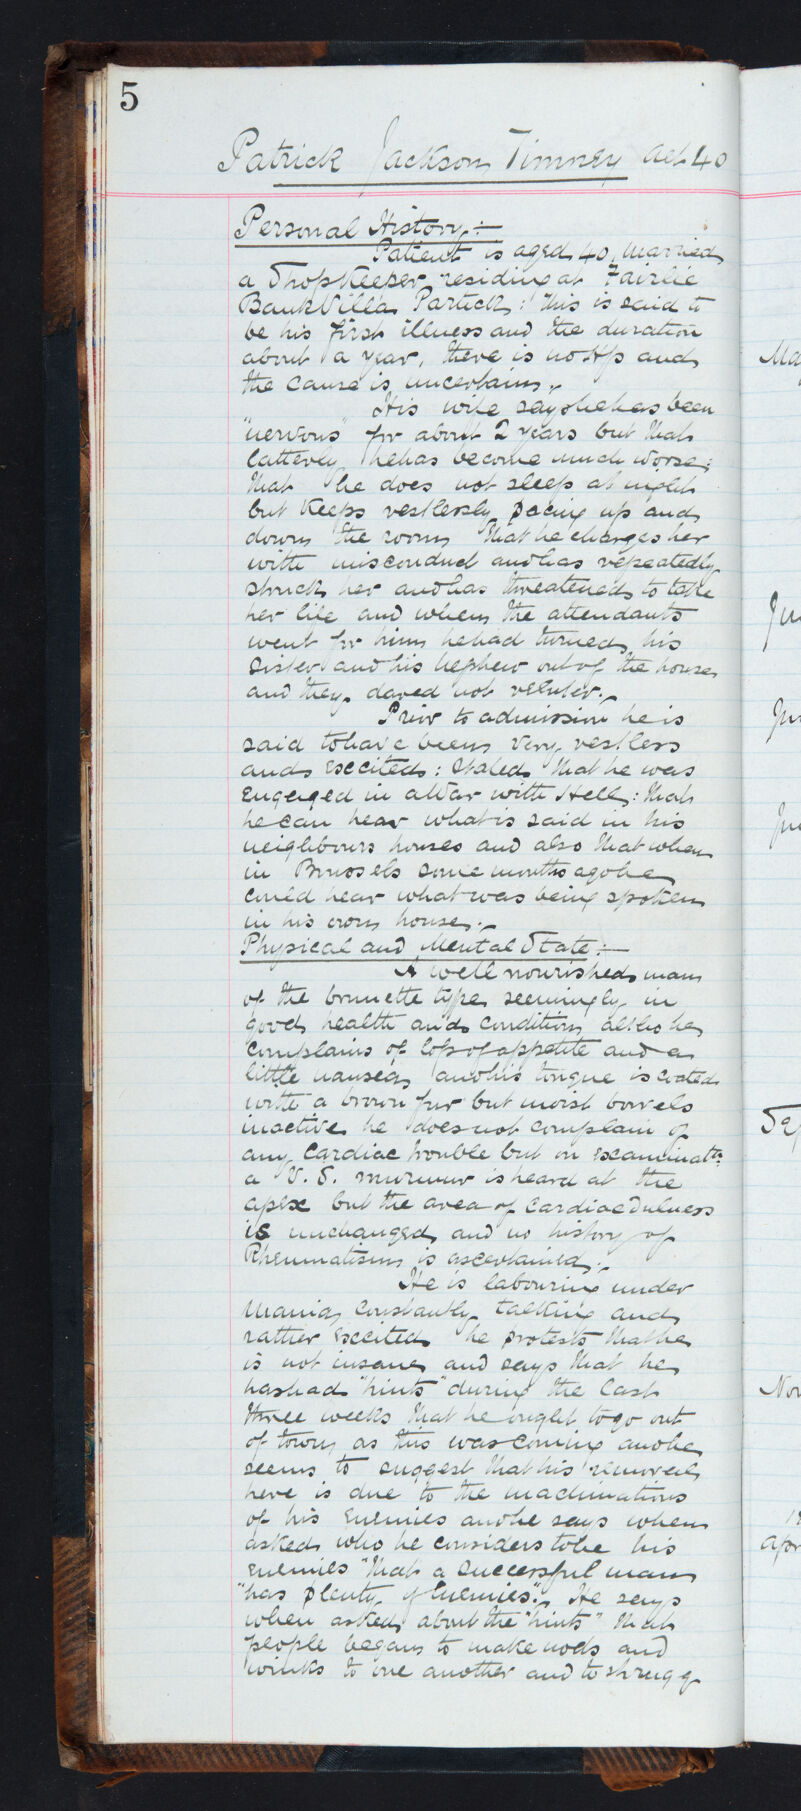 5
Patrick Jackson Timney aet 40
Personal History:-
Patient is aged 40, married,
a Shopkeeper residing at Fairlie
Bank Villa Partick: this is said to
be his first illness and the duration
about a year, there is no H/p and
the cause is uncertain.
His wife says he has been
"nervous" for about 2 years but that
latterly he has become much worse:
that he does not sleep at night
but keeps restlessly pacing up and
down the room, that he charges her
with misconduct and has repeatedly
struck her and has threatened to take
her life and when the attendants
went for him he had turned his
sister and his nephew out of the house
and they dared not reenter.
Prior to admission he is
said to have been very restless
and excited: stated that he was
engaged in a War with Hell: that
he can hear what is said in his
neighbours houses and also that when
in Brussels some months ago he
could hear what was being spoken
in his own house.
Physical and Mental State:-
A well nourished man
of the brunette type seemingly in
good health and condition altho he
complains of loss of appetite and a
little nausea, and his tongue is coated
with a brown fur but moist bowels
inactive he does not complain of
any cardiac trouble but on examinatn:
a V.S. murmur is heard at the
apex but the area of cardiac dulness
is unchanged and no history of
Rheumatism is ascertained.
He is labouring under
Mania, constantly talking and
rather excited he protests that he
is not insane and says that he
has had "hints" during the last
three weeks that he ought to go out
of town as this was coming and he
seems to suggest that his removal
here is due to the machinations
of his enemies and he says when
asked who he considers to be his
enemies "that a successful man
"has plenty of Enemies". He says
when asked about the "hints" that
people began to make nods and
winks to one another and to shrug
Ma
Ju
Ju
Ju
Sep
Nov
Apr